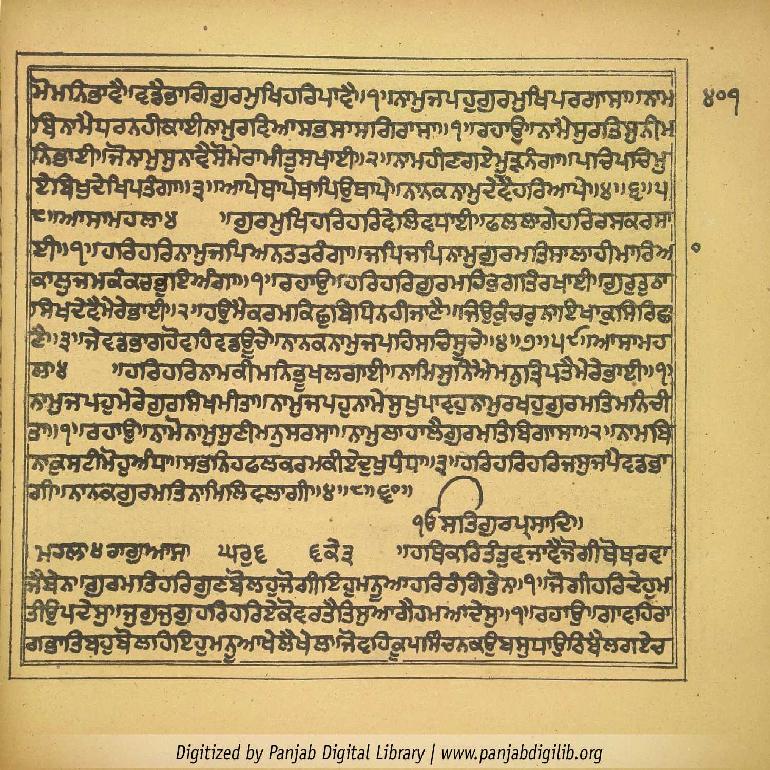 ਮੇਮਨਿਭਾਵੈ॥ਵਡੈਭਾਗਿਗੁਰਮੁਖਿਹਰਿਪਾਵੈ॥੧॥ਨਾਮੁਜਪਹੁਗੁਰਮੁਖਿਪਰਗਾਸਾ॥ਨਾਮ
ਬਿਨਾਮੈਧਰਨਹੀਕਾਈਨਾਮੁਰਵਿਆਸਭਸਾਸਗਿਰਾਸਾ॥੧॥ਰਹਾਉ॥ਨਾਮੈਸੁਰਤਿਸੁਨੀਮ
ਨਿਭਾਈ॥ਜੋਨਾਮੁਸੁਨਾਵੈਸੋਮੇਰਾਮੀਤੁਸਖਾਈ॥੨॥ਨਾਮਹੀਣਗਏਮੂੜਨੰਗਾ॥ਪਚਿਪਚਿਮੁ
ਏਬਿਖੁਦੇਖਿਪਤੰਗਾ॥੩॥ਆਪੇਥਾਪੇਥਾਪਿਉਥਾਪੇ॥ਨਾਨਕਨਾਮੁਦੇਵੈਹਰਿਆਪੇ॥੪॥੬॥੫
੮॥ਆਸਾਮਹਲਾ੪ ॥ਗੁਰਮੁਖਿਹਰਿਹਰਿਵੇਲਿਵਧਾਈ॥ਫਲਲਾਗੇਹਰਿਰਸਕਰਸਾ
ਈ॥੧॥ਹਰਿਹਰਿਨਾਮੁਜਪਿਅਨਤਤਰੰਗਾ॥ਜਪਿਜਪਿਨਾਮੁਗੁਰਮਤਿਸਾਲਾਹੀਮਾਰਿਅ
ਕਾਲੁਜਮਕੰਕਰਭੁਇਅੰਗਾ॥੧॥ਰਹਾਉ॥ਹਰਿਹਰਿਗੁਰਮਹਿਭਗਤਿਰਖਾਈ॥ਗੁਰੁਤੁਠਾ
ਸਿਖਦੇਵੈਮੇਰੇਭਾਈ॥੨॥ਹਉਮੈਕਰਮਕਿਛੁਬਿਧਿਨਹੀਜਾਣੈ॥ਜਿਉਕੁੰਚਰੁਨਾਇਖਾਕੁਸਿਰਿਛ
ਣੈ॥੩॥ਜੇਵਡਭਾਗਹੋਵਹਿਵਡਊਚੇ॥ਨਾਨਕਨਾਮੁਜਪਹਿਸਚਿਸੂਚੇ॥੪॥੭॥੫੯॥ਆਸਾਮਹ
ਲਾ੪ ॥ਹਰਿਹਰਿਨਾਮਕੀਮਨਿਭੂਖਲਗਾਈ॥ਨਾਮਿਸੁਨਿਐਮਨੁਤ੍ਰਿਪਤੈਮੇਰੇਭਾਈ॥੧॥
ਨਾਮੁਜਪਹੁਮੇਰੇਗੁਰਸਿਖਮੀਤਾ॥ਨਾਮੁਜਪਹੁਨਾਮੇਸੁਖੁਪਾਵਹੁਨਾਮੁਰਖਹੁਗੁਰਮਤਿਮਨਿਚੀ
ਤਾ॥੧॥ਰਹਾਉ॥ਨਾਮੋਨਾਮੁਸੁਣੀਮਨੁਸਰਸਾ॥ਨਾਮੁਲਾਹਾਲੈਗੁਰਮਤਿਬਿਗਸਾ॥੨॥ਨਾਮਬਿ
ਨਾਕੁਸਟੀਮੋਹਅੰਧਾ॥ਸਭਨਿਹਫਲਕਰਮਕੀਏਦੁਖੁਧੰਧਾ॥੩॥ਹਰਿਹਰਿਹਰਿਜਸੁਜਪੈਵਡਭਾ
ਗੀ॥ਨਾਨਕਗੁਰਮਤਿਨਾਮਿਲਿਵਲਾਗੀ॥੪॥੮॥੬੦॥
ੴਸਤਿਗੁਰਪ੍ਰਸਾਦਿ॥
ਮਹਲਾ੪ਰਾਗੁਆਸਾ ਘਰੁ੬ ੬ਕੇ੩ ॥ਹਥਿਕਰਿਤੰਤੁਵਜਾਵੈਜੋਗੀਥੋਥਰਵਾ
ਜੈਬੇਨ॥ਗੁਰਮਤਿਹਰਿਗੁਣਬੋਲਹੁਜੋਗੀਇਹੁਮਨੂਆਹਰਿਰੰਗਿਭੇਨ॥੧॥ਜੋਗੀਹਰਿਦੇਹੁਮ
ਤੀਉਪਦੇਸੁ॥ਜੁਗੁਜੁਗੁਹਰਿਹਰਿਏਕੋਵਰਤੈਤਿਸੁਆਗੈਹਮਆਦੇਸੁ॥੧॥ਰਹਾਉ॥ਗਾਵਹਿਰਾ
ਗਭਾਤਿਬਹੁਬੋਲਹਿਇਹੁਮਨੂਆਖੇਲੈਖੇਲ॥ਜੋਵਹਿਕੂਪਸਿੰਚਨਕਉਬਸੁਧਾਉਠਿਬੈਲਗਏਚ
੪੦੧
Digitized by Panjab Digital Library | www.panjabdigilib.org